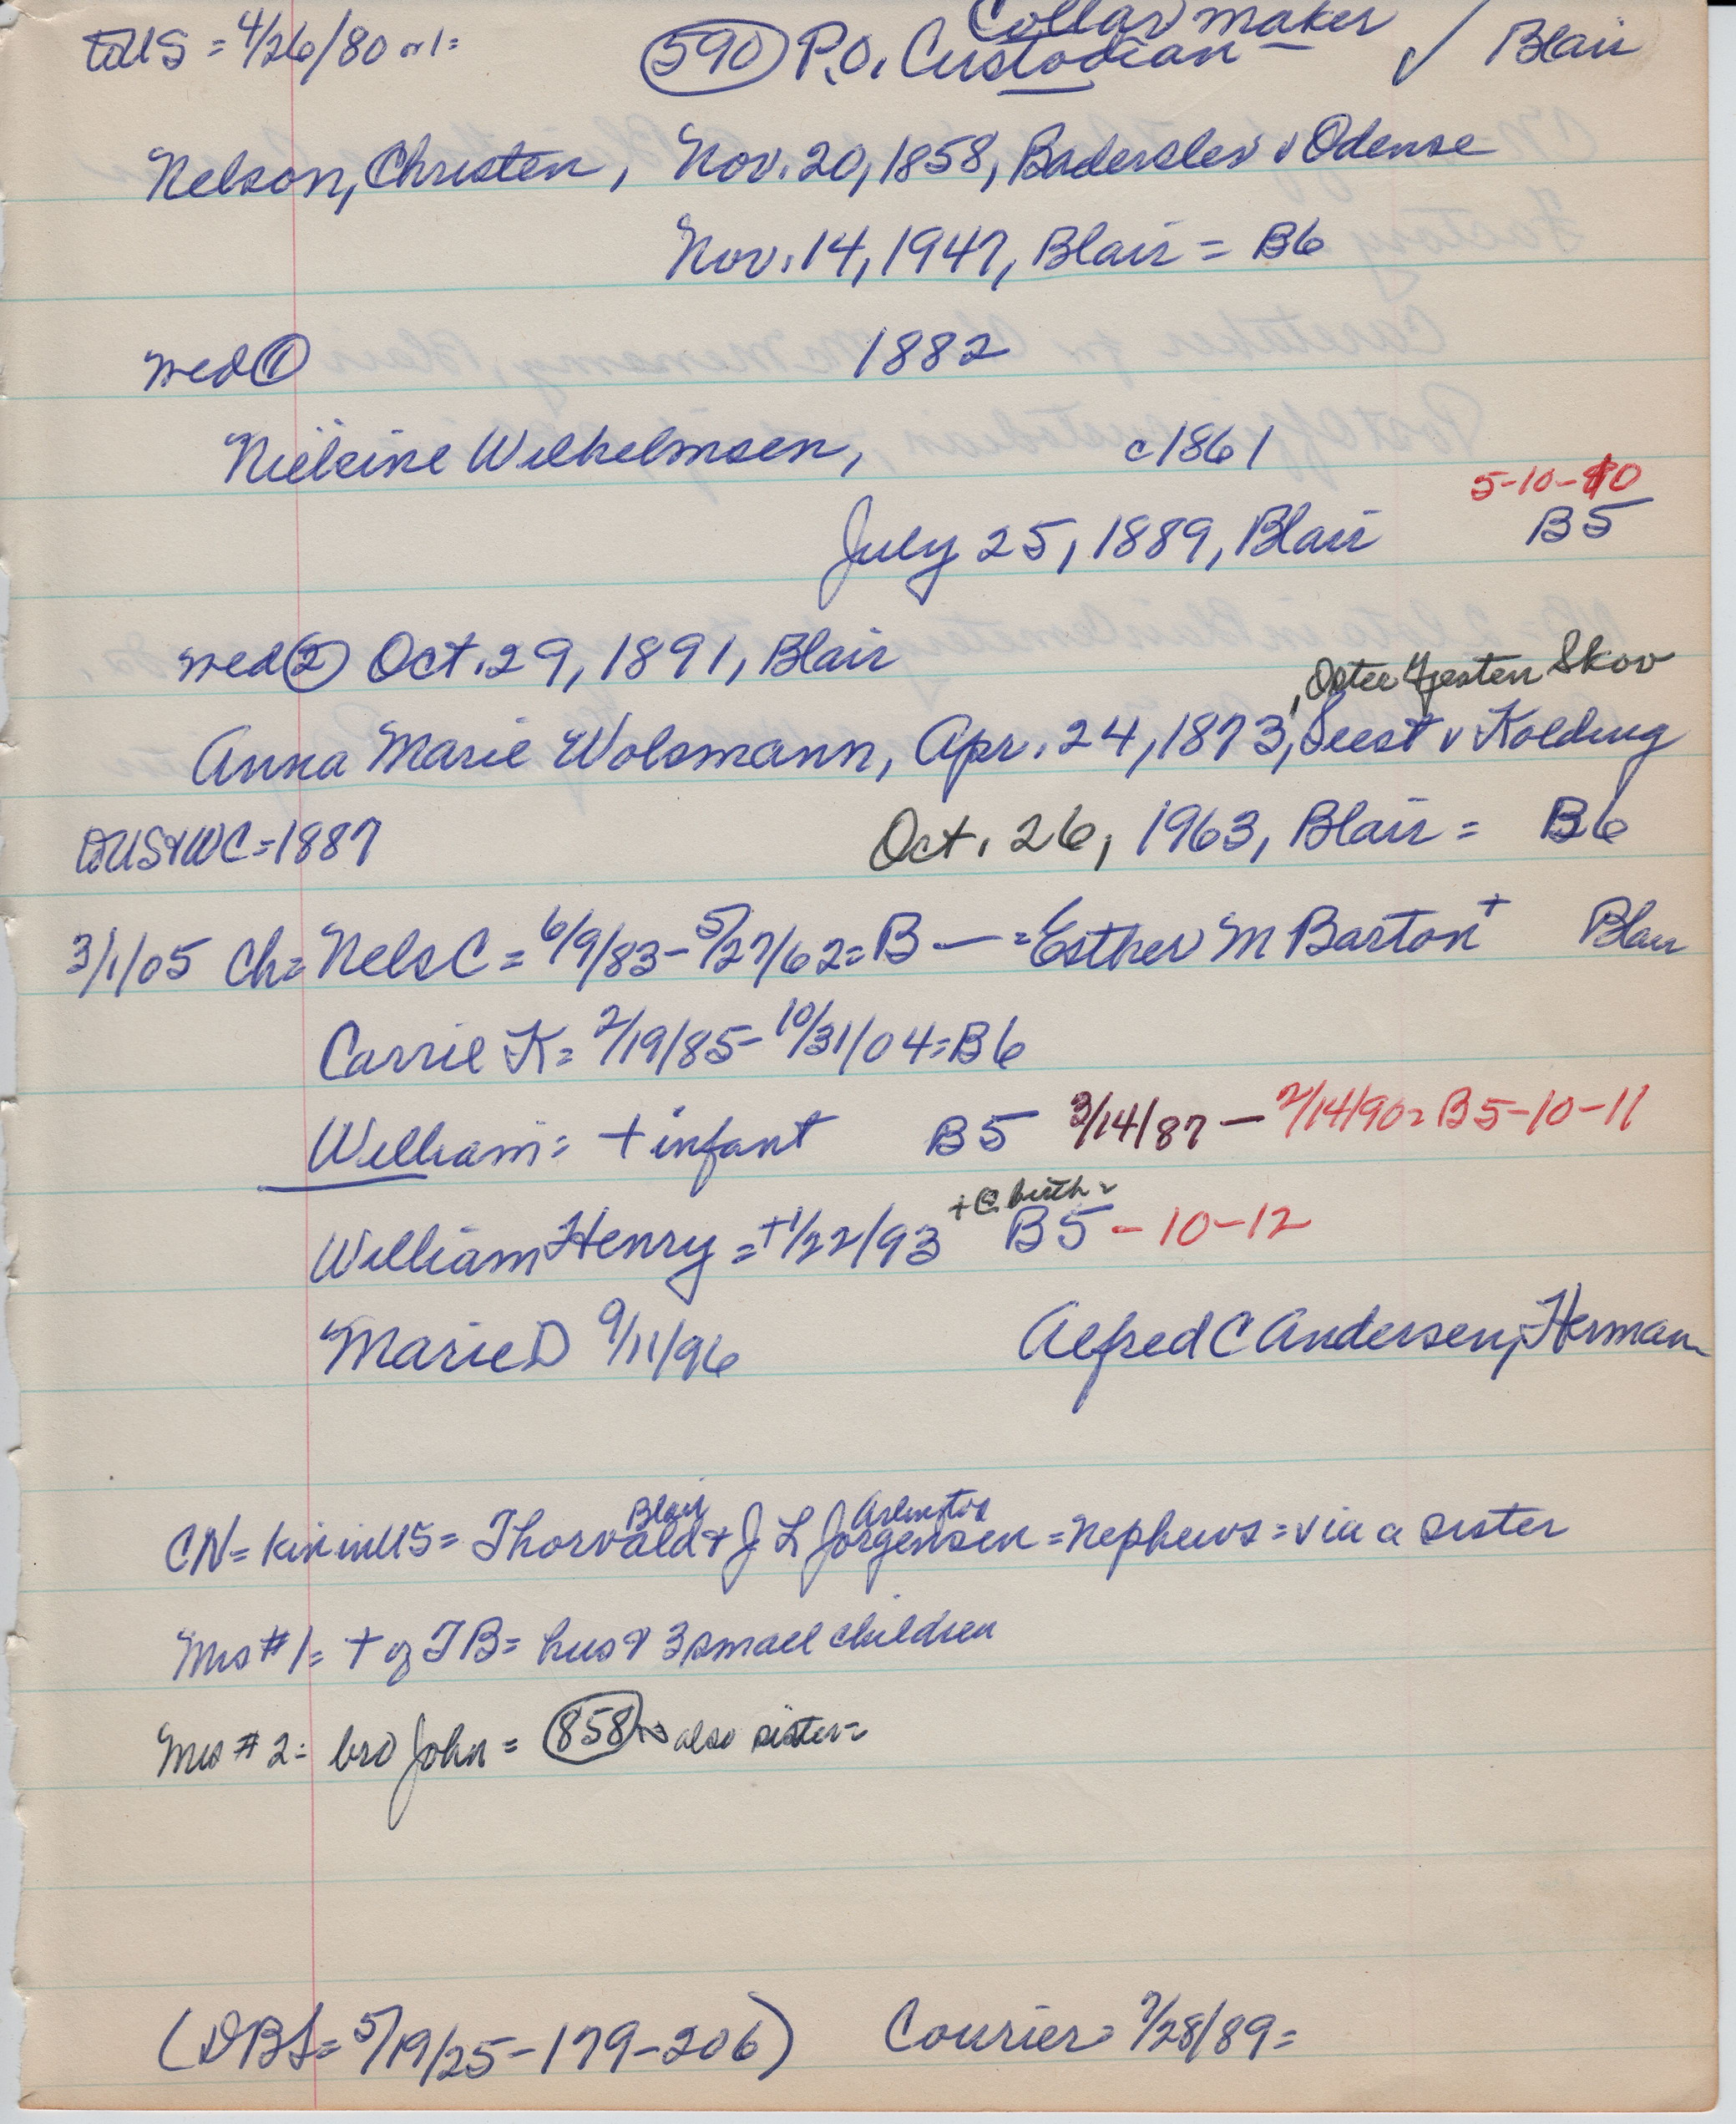 Collar maker
toUS = 4/26/80 or 1 = (590) P.O. Custodian — ✓ Blair
Nelson, Christen, Nov. 20, 1858, v Odense
Nov. 14, 1947, Blair = B6
wed ① 1882
Nielsine Wilhelmsen, c1861
5-10-10
July 25, 1889, Blair B5
wed ② Oct. 29, 1891, Blair
, Oster Gjesten Skov
Anna Marie Wolsmann, Apr. 24, 1873, Seest v Kolding
toUS+WC = 1887 Oct. 26, 1963, Blair = B6
3/1/05 Ch = Nels C = 6/9/83 - 5/27/62 = B — = Esther M Barton + Blair
Carrie K = 2/19/85 - 10/31/04 = B6
William = + infant B5 3/14/87 — 2/14/90 = B5-10-11
+ @ birth =
William Henry = + 1/22/93 B5 - 10-12
Marie D 9/11/96 Alfred C Andersen, Herman
Blair Arlington
CN = kin in US = Thorvald + J L Jorgensen = nephews = via a sister
Mrs #1 = + of TB = hus & 3 small children
Mrs #2 = bro John = (858) also sister =
(DBS = 5/19/25 - 179 - 206) Courier = 7/28/89 =